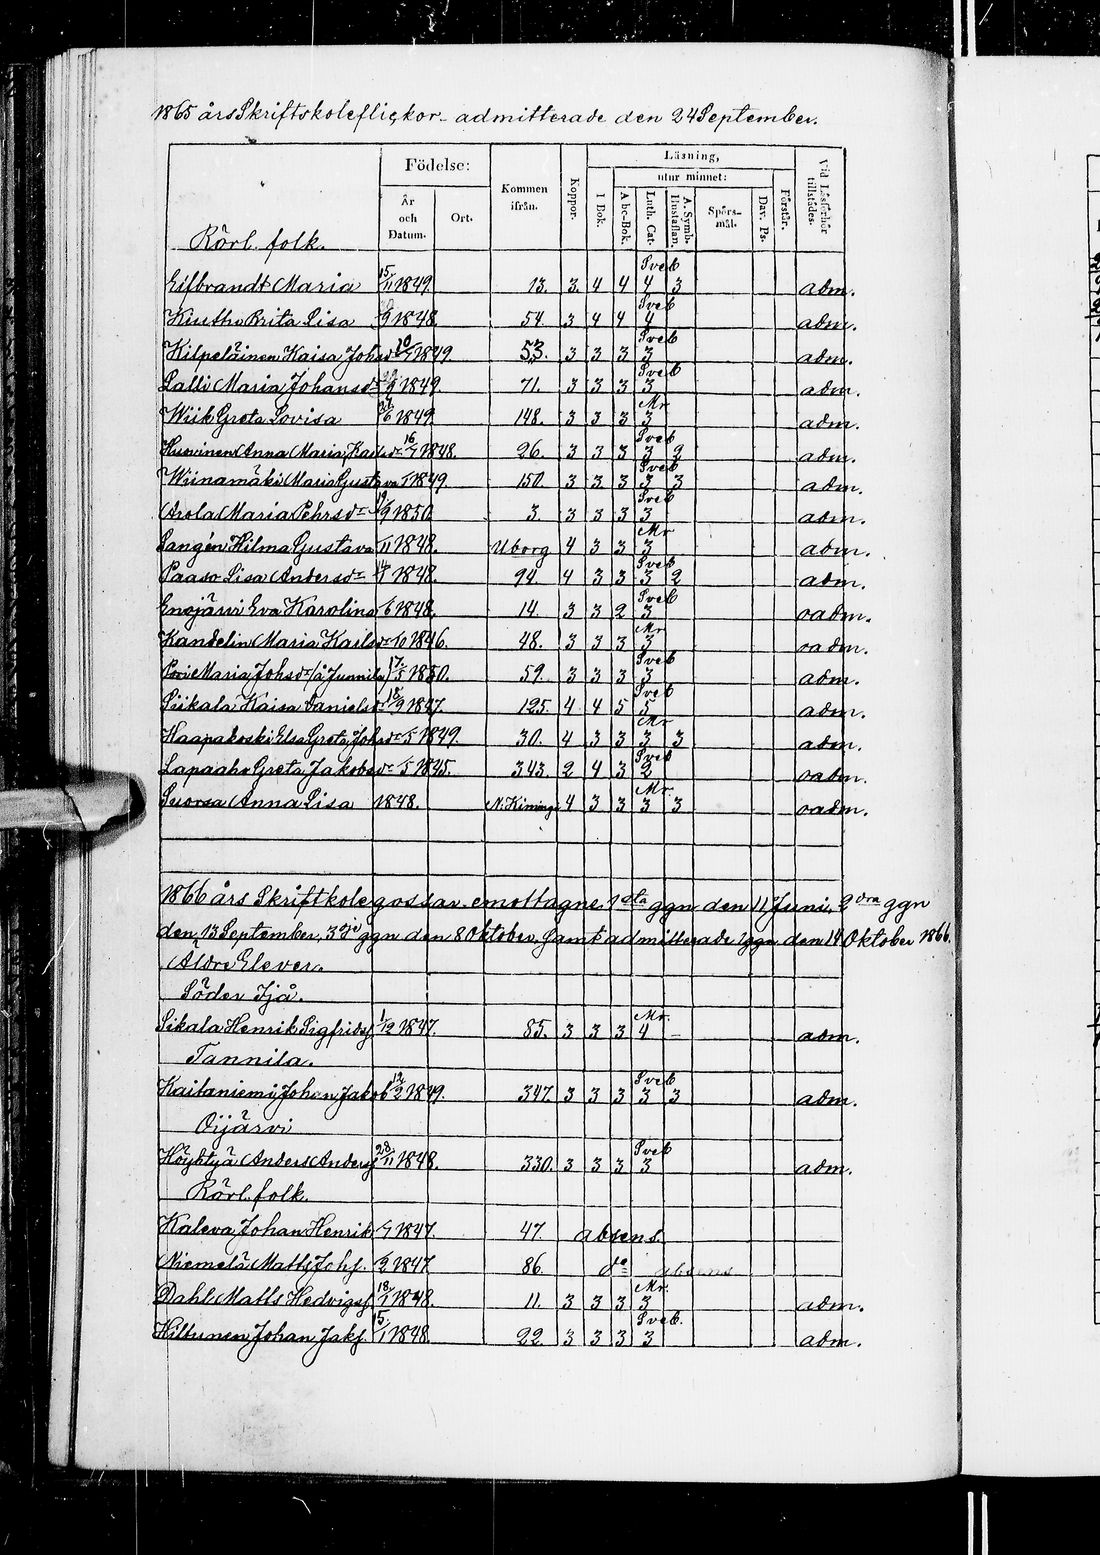 1865 års Skriftskoleflickor admitterade den 24 September.
Födelse: Kommen ifrån. Koppor. Läsning, Förstår. Vid Läsförhör tillstädes.
År och Datum. Ort. I Bok. utur minnet:
A bc-Bok. Luth. Cat. A. Symb. Hustaflan. Spörs-mål. Dav. Ps.
Rörl. folk.
Elfbrandt Maria 15/11 1849 13. 3. 4 4 Sveb 4 3 adm.
Brita Lisa 1848 54. 3 4 4 Sveb 4 adm.
Kilpeläinen Kaisa Johsdr 10/7 1849. 53. 3 3 3 Sveb 3 adm.
Lalli Maria Johansdr 1849 71. 3 3 3 Sveb 3 adm.
Wiik Greta Lovisa 1849 148. 3 3 3 Mr 3 adm.
Anna Maria Karlsdr 16/7 1848. 26. 3 3 3 Sveb 3 2 adm.
Wiinamäki Maria Gustava 1849 150. 3 3 3 Sveb 3 3 adm.
Arola Maria Pehrsdr 1850 3. 3 3 3 Sveb 3 adm.
Langén Hilma Gustava /11 1848. Uborg 4 3 3 Mr 3 adm.
Paaso Lisa Andersdr 1848. 94. 4 3 3 Sveb 3 2 adm.
Enojärvi Eva Karolina /6 1848. 14. 3 3 2 Sveb 3 oadm.
Kandelin Maria Karlsdr /10 1846. 48. 3 3 3 Mr 3 oadm.
Maria Johsdr /å Junnila/ 17/5 1850. 59. 3 3 3 Sveb 3 adm.
Siikala Kaisa Danielsdr 18/9 1847 125. 4 4 5 Sveb 5 adm.
Haapakoski Elsa Greta Johsdr /5 1849. 30. 4 3 3 Mr 3 3 adm.
Lapaaho Greta Jakobsdr /5 1845. 343. 2 4 3 Sveb 2 oadm.
Suorsa Anna Lisa 1848. N. Kiminge 4 3 3 Mr 3 3 oadm.
1866 års Skriftskolegossar emottagne 1sta ggn den 11 Juni, 2dra ggn
den 13 September, 3dje ggn den 8 Oktober, samt admitterade den 14 Oktober 1866.
Äldre Elever.
Söder Ijå.
Sikala Henrik Sigfridsf 1/12 1847. 85. 3 3 3 Mr. 4 – adm.
Tannila.
Kaitaniemi Johan Jakob 12/2 1849. 347 3 3 3 Sveb 3 3 adm.
Oijärvi
Höyhtyä Anders Andersf 28/11 1848. 330. 3 3 3 Sveb 3 adm.
Rörl. folk.
Kaleva Johan Henrik /7 1847. 47. absens.
Niemelä Matts Johf. /2 1847 86. do absens
Dahl Matts Hedvigsf 18/1 1848. 11. 3 3 3 Mr. 3 adm.
Hiltunen Johan Jakf. 15/1 1848. 22. 3 3 3 Sveb. 3 adm.